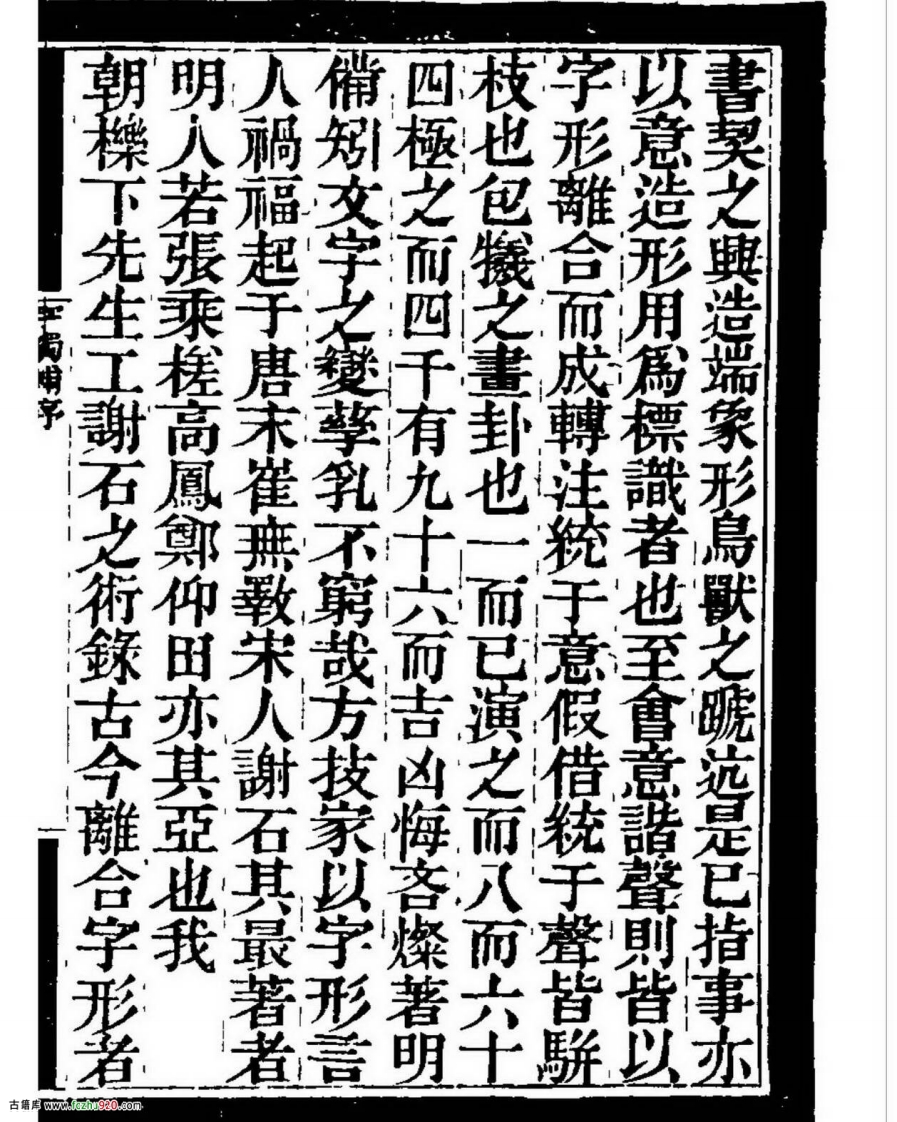 書契之興造端象形鳥獸之蹏迒是已指事亦
以意造形用爲標識者也至會意諧聲則皆以
字形離合而成轉注統于意假借統于聲皆駢
枝也包犧之畫卦也一而已演之而八而六十
四極之而四千有九十六而吉凶悔吝燦著明
備矧文字之變孳乳不窮哉方技家以字形言
人禍福起于唐末崔無斁宋人謝石其最著者
明人若張乘槎高鳳鄭仰田亦其亞也我
朝櫟下先生工謝石之術錄古今離合字形者
字觸補序
古籍库 www.fozhu920.com